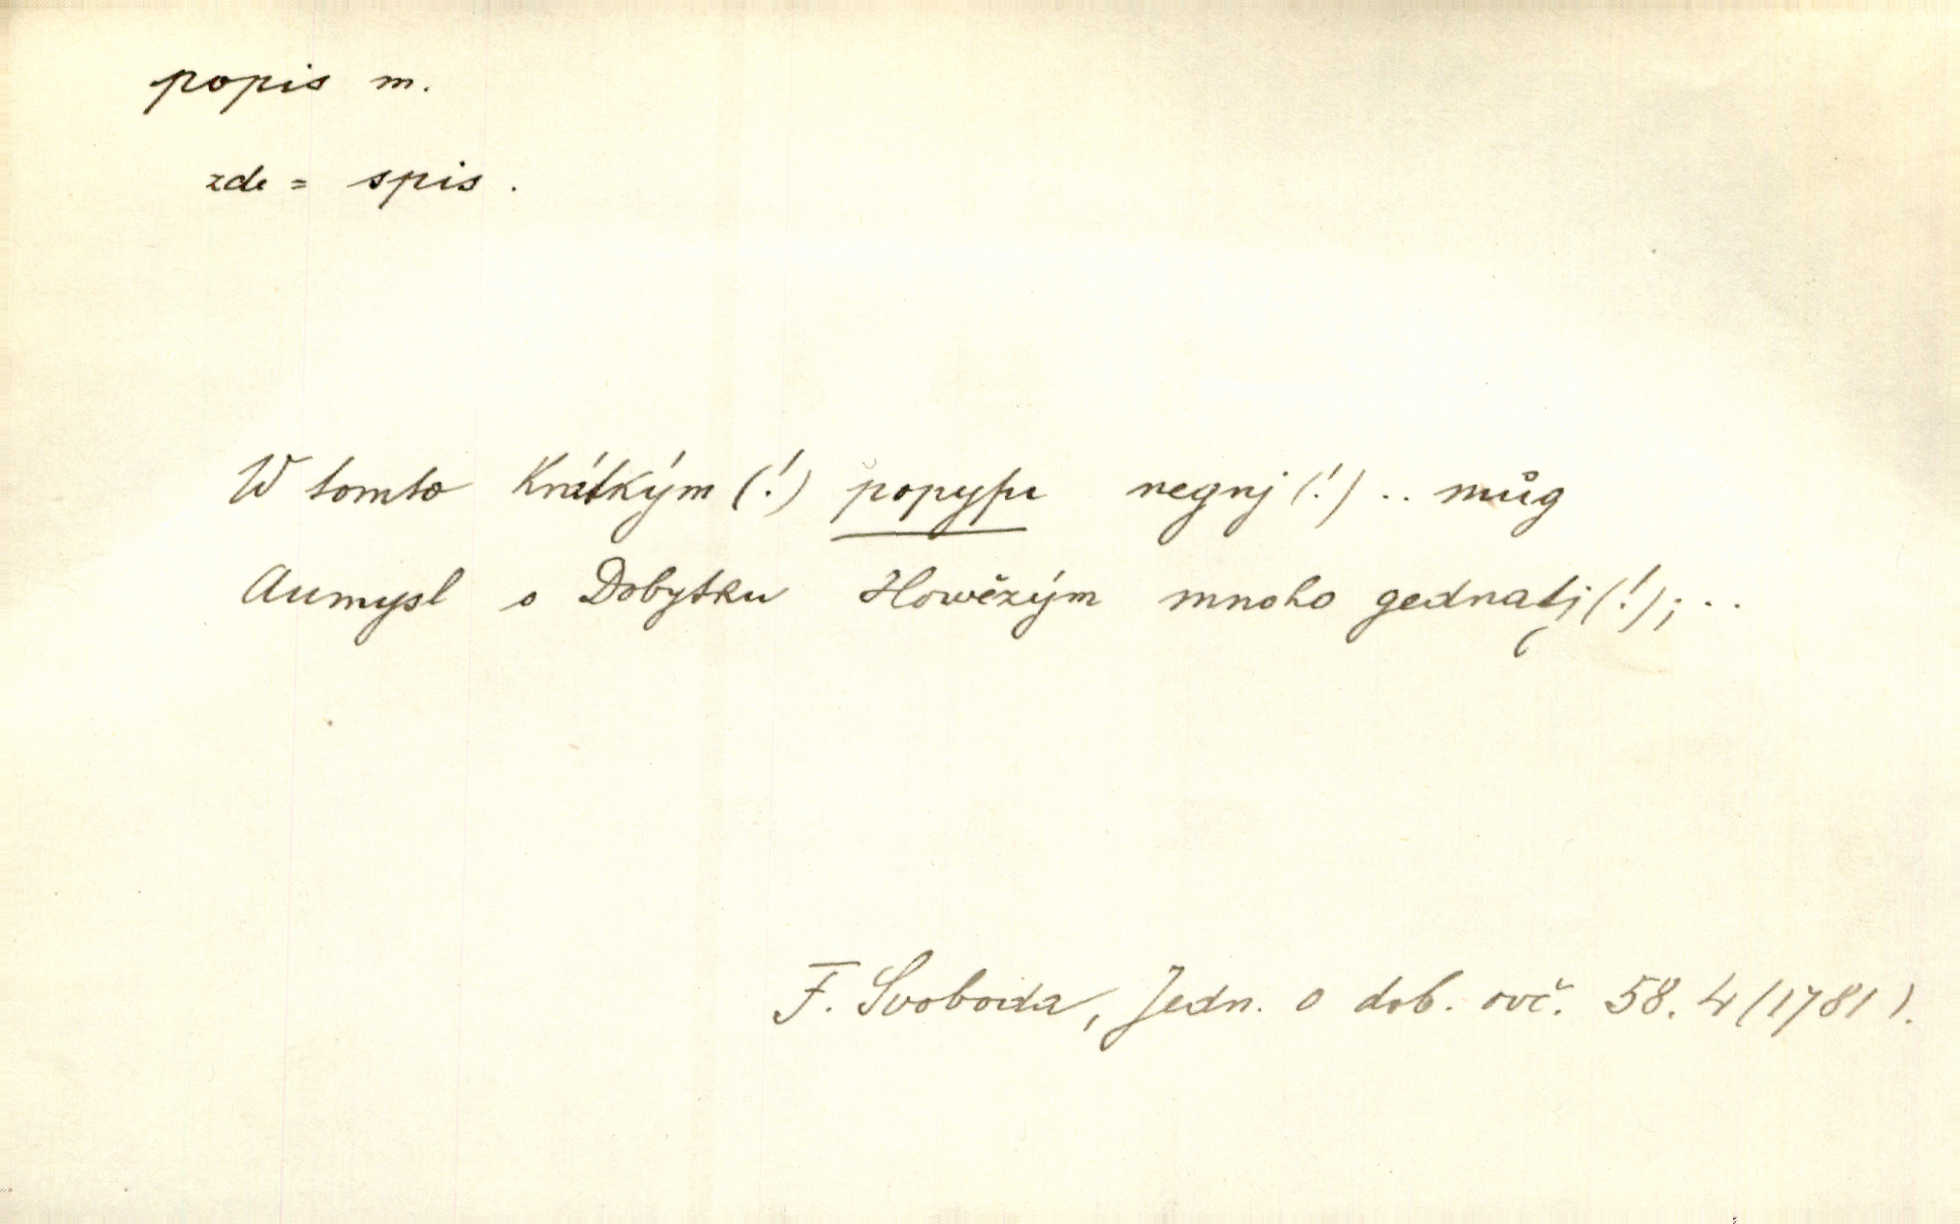 popis m.
zde = spis.
W tomto Krátkým (!) popyſu negnj (!) .. můg
Aumysl o Dobytku Howězým mnoho gednatj (!); ..
F. Svoboda, Jedn. o dob. ovč. 58. 4 (1781).